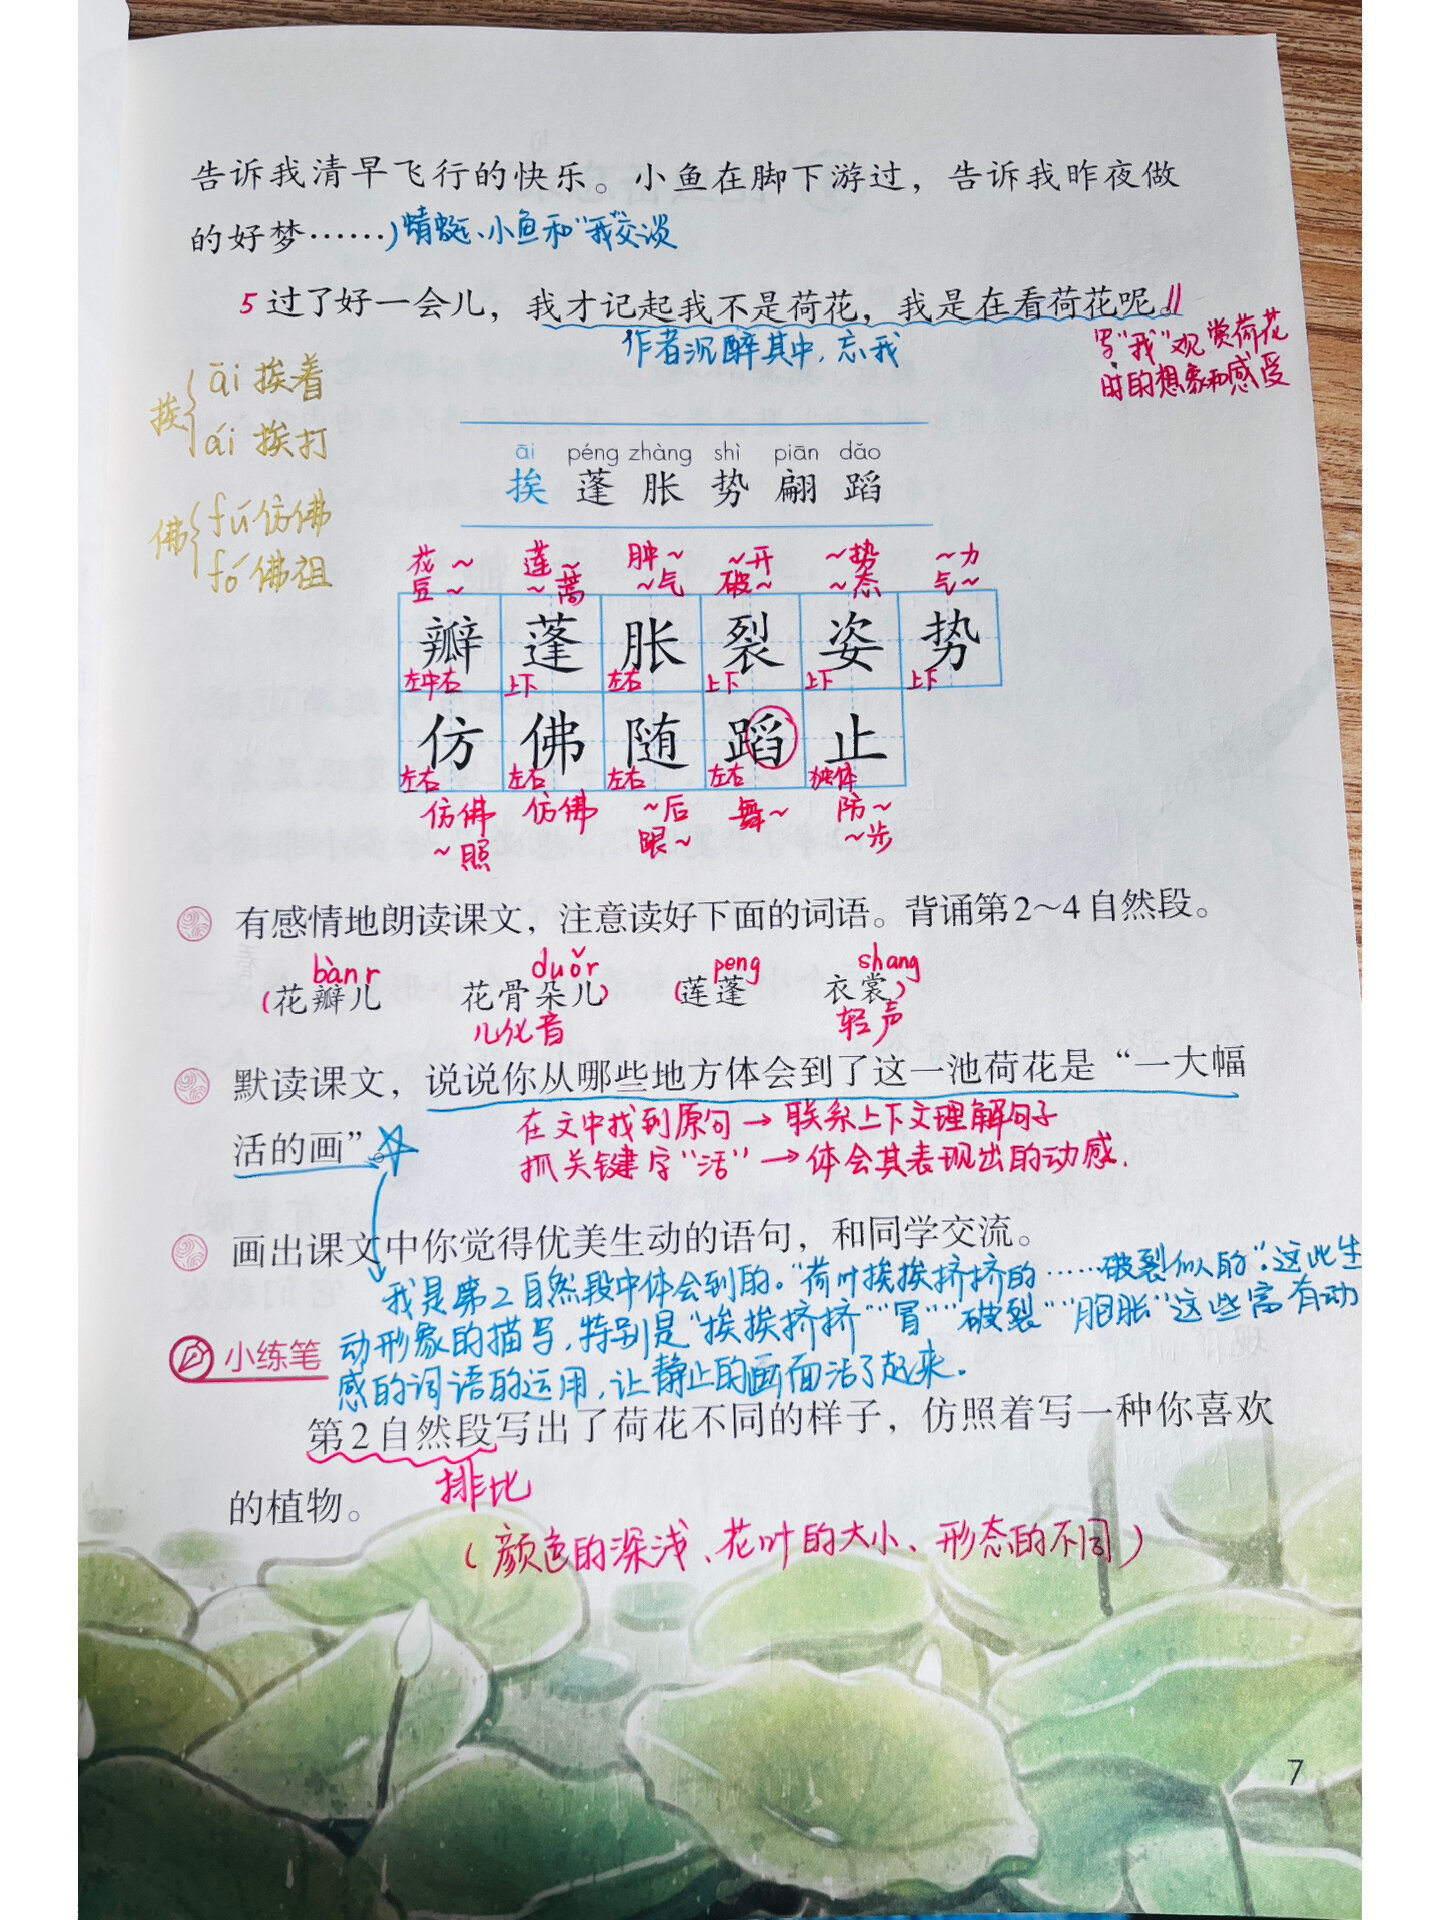 告诉我清早飞行的快乐。小鱼在脚下游过，告诉我昨夜做
的好梦……）蜻蜓、小鱼和“我”交谈
5 过了好一会儿，我才记起我不是荷花，我是在看荷花呢。∥
作者沉醉其中，忘我
写“我”观赏荷花
时的想象和感受
挨{āi 挨着
ái 挨打
佛{fú 仿佛
fó 佛祖
āi péng zhàng shì piān dǎo
挨 蓬 胀 势 翩 蹈
花～ 莲～ 肿～ ～开 ～势 ～力
豆～ ～蒿 ～气 破～ ～态 气～
瓣 蓬 胀 裂 姿 势
左中右 上下 左右 上下 上下 上下
仿 佛 随 蹈 止
左右 左右 左右 左右 独体
仿佛 仿佛 ～后 舞～ 防～
～照 跟～ ～步
有感情地朗读课文，注意读好下面的词语。背诵第2～4自然段。
bànr duǒr peng shang
（花瓣儿 花骨朵儿） （莲蓬 衣裳）
儿化音 轻声
默读课文，说说你从哪些地方体会到了这一池荷花是“一大幅
在文中找到原句→联系上下文理解句子
活的画”。
抓关键字“活”→体会其表现出的动感.
画出课文中你觉得优美生动的语句，和同学交流。
我是第2自然段中体会到的。“荷叶挨挨挤挤的……破裂似的”.这些生
动形象的描写，特别是“挨挨挤挤”“冒”“破裂”“胀”这些富有动
小练笔
感的词语的运用，让静止的画面活了起来.
第2自然段写出了荷花不同的样子，仿照着写一种你喜欢
排比
的植物。
（颜色的深浅、花叶的大小、形态的不同）
7